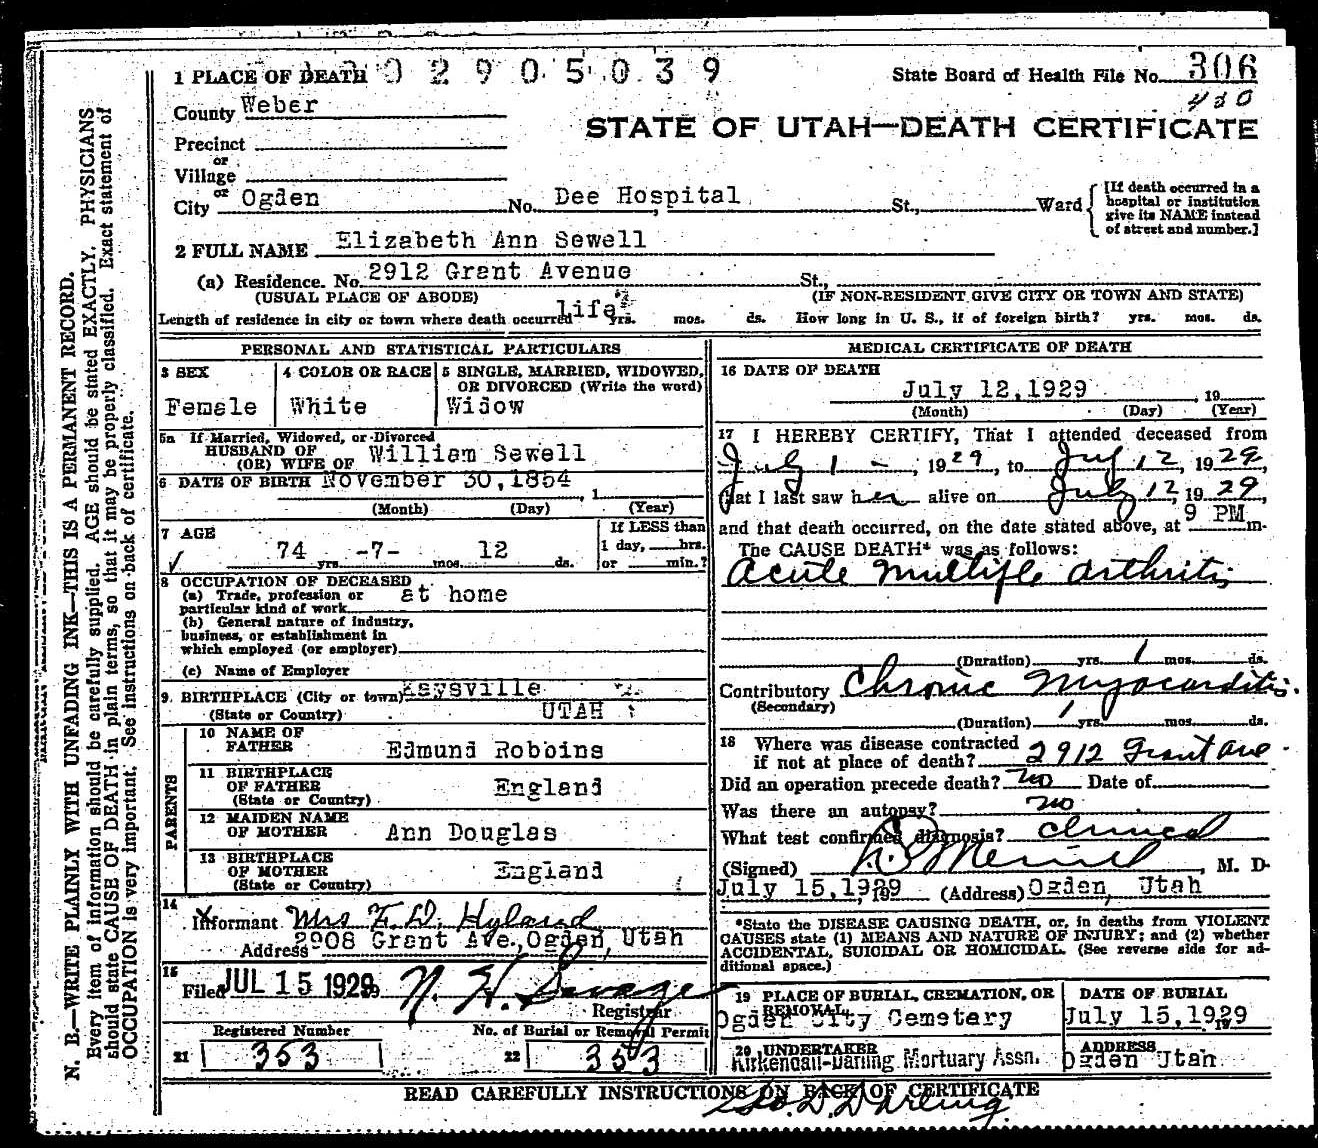 1 PLACE OF DEATH 0 2 9 0 5 0 3 9
State Board of Health File No. 306
430
County Weber
STATE OF UTAH—DEATH CERTIFICATE
Precinct
or
Village
or
City Ogden No. Dee Hospital St., Ward
[If death occurred in a
hospital or institution
give its NAME instead
of street and number.]
2 FULL NAME Elizabeth Ann Sewell
(a) Residence. No. 2912 Grant Avenue St.,
(USUAL PLACE OF ABODE) (IF NON-RESIDENT GIVE CITY OR TOWN AND STATE)
Length of residence in city or town where death occurred life yrs. mos. ds. How long in U. S., if of foreign birth? yrs. mos. ds.
PERSONAL AND STATISTICAL PARTICULARS
3 SEX
Female
4 COLOR OR RACE
White
5 SINGLE, MARRIED, WIDOWED,
OR DIVORCED (Write the word)
Widow
5a If Married, Widowed, or Divorced
HUSBAND OF
(OR) WIFE OF William Sewell
6 DATE OF BIRTH November 30,1854 , 1
(Month) (Day) (Year)
7 AGE
74 yrs. -7- mos. 12 ds.
If LESS than
1 day, hrs.
or min.?
8 OCCUPATION OF DECEASED
(a) Trade, profession or
particular kind of work at home
(b) General nature of industry,
business, or establishment in
which employed (or employer)
(c) Name of Employer
9. BIRTHPLACE (City or town) Kaysville
(State or Country) UTAH
PARENTS
10 NAME OF
FATHER Edmund Robbins
11 BIRTHPLACE
OF FATHER
(State or Country) England
12 MAIDEN NAME
OF MOTHER Ann Douglas
13 BIRTHPLACE
OF MOTHER
(State or Country) England
14
Informant Mrs F. D. Hyland
Address 2908 Grant Ave.,Ogden, Utah
15
Filed JUL 15 1929 N. H. Savage
Registrar
Registered Number
21 353
No. of Burial or Removal Permit
22 353
MEDICAL CERTIFICATE OF DEATH
16 DATE OF DEATH
July 12,1929 , 19
(Month) (Day) (Year)
17 I HEREBY CERTIFY, That I attended deceased from
July 1 - , 1929, to July 12, 1929,
that I last saw her alive on July 12, 1929,
and that death occurred, on the date stated above, at 9 PM m.
The CAUSE DEATH* was as follows:
Acute Multiple Arthritis
(Duration) yrs. 1 mos. ds.
Contributory Chronic Myocarditis.
(Secondary)
(Duration) 1 yrs. mos. ds.
18 Where was disease contracted
if not at place of death? 2912 Grant Ave.
Did an operation precede death? no Date of
Was there an autopsy? no
What test confirmed diagnosis? Clinical
(Signed) Merrill, M. D.
July 15,1929 (Address) Ogden, Utah
*State the DISEASE CAUSING DEATH, or, in deaths from VIOLENT
CAUSES state (1) MEANS AND NATURE OF INJURY; and (2) whether
ACCIDENTAL, SUICIDAL OR HOMICIDAL. (See reverse side for ad-
ditional space.)
19 PLACE OF BURIAL, CREMATION, OR
REMOVAL
Ogden City Cemetery
DATE OF BURIAL
July 15,1929
20 UNDERTAKER
Kirkendall-Darling Mortuary Assn.
ADDRESS
Ogden Utah
READ CAREFULLY INSTRUCTIONS ON BACK OF CERTIFICATE
Geo. D. Darling.
N. B.—WRITE PLAINLY WITH UNFADING INK—THIS IS A PERMANENT RECORD.
Every item of information should be carefully supplied. AGE should be stated EXACTLY. PHYSICIANS
should state CAUSE OF DEATH in plain terms, so that it may be properly classified. Exact statement of
OCCUPATION is very important. See instructions on back of certificate.